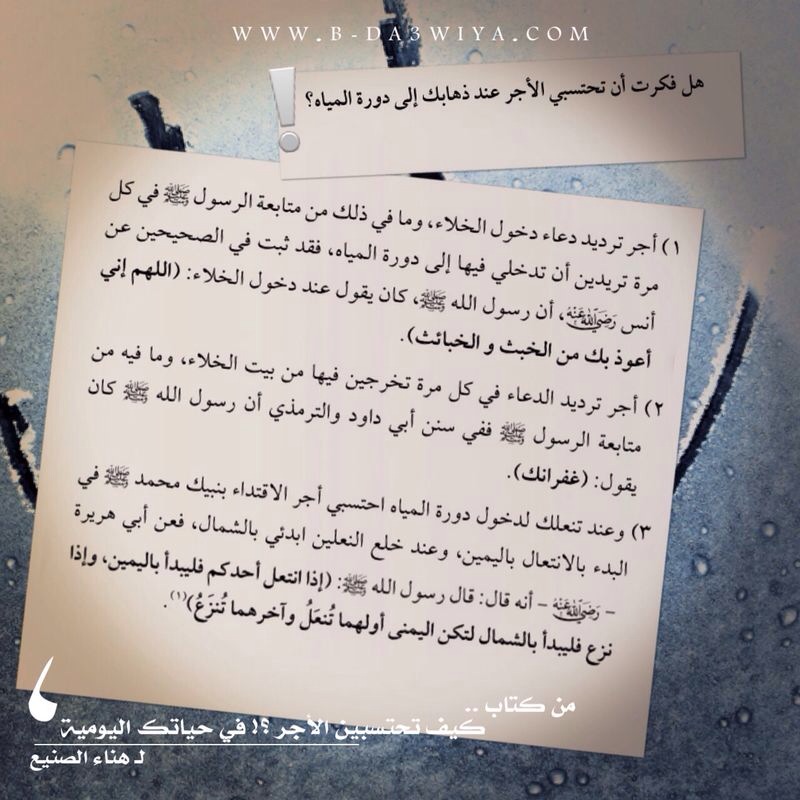 WWW.B-DA3WIYA.COM
هل فكرت أن تحتسبي الأجر عند ذهابك إلى دورة المياه؟
١) أجر ترديد دعاء دخول الخلاء، وما في ذلك من متابعة الرسول ﷺ في كل
مرة تريدين أن تدخلي فيها إلى دورة المياه، فقد ثبت في الصحيحين عن
أنس رَضِيَ اللهُ عَنْهُ، أن رسول الله ﷺ، كان يقول عند دخول الخلاء: (اللهم إني
أعوذ بك من الخبث و الخبائث).
٢) أجر ترديد الدعاء في كل مرة تخرجين فيها من بيت الخلاء، وما فيه من
متابعة الرسول ﷺ ففي سنن أبي داود والترمذي أن رسول الله ﷺ كان
يقول: (غفرانك).
٣) وعند تنعلك لدخول دورة المياه احتسبي أجر الاقتداء بنبيك محمد ﷺ في
البدء بالانتعال باليمين، وعند خلع النعلين ابدئي بالشمال، فعن أبي هريرة
– رَضِيَ اللهُ عَنْهُ – أنه قال: قال رسول الله ﷺ: (إذا انتعل أحدكم فليبدأ باليمين، وإذا
نزع فليبدأ بالشمال لتكن اليمنى أولهما تُنعَلُ وآخرهما تُنزَعُ)(١).
من كتاب ..
كيف تحتسبين الأجر ؟! في حياتك اليومية
لـ هناء الصنيع